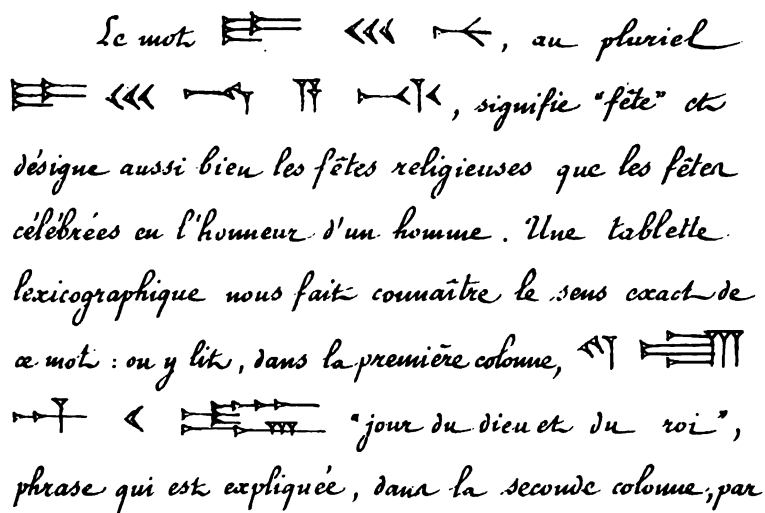 Le mot 𒄿 𒌍 𒉡, au pluriel
𒄿 𒌍 𒈾 𒀀 𒋾, signifie "fête" et
désigne aussi bien les fêtes religieuses que les fêtes
célébrées en l'honneur d'un homme. Une tablette
lexicographique nous fait connaître le sens exact de
ce mot : on y lit, dans la première colonne, 𒌓 𒌝
𒀭 𒌋 𒈗 "jour du dieu et du roi",
phrase qui est expliquée, dans la seconde colonne, par